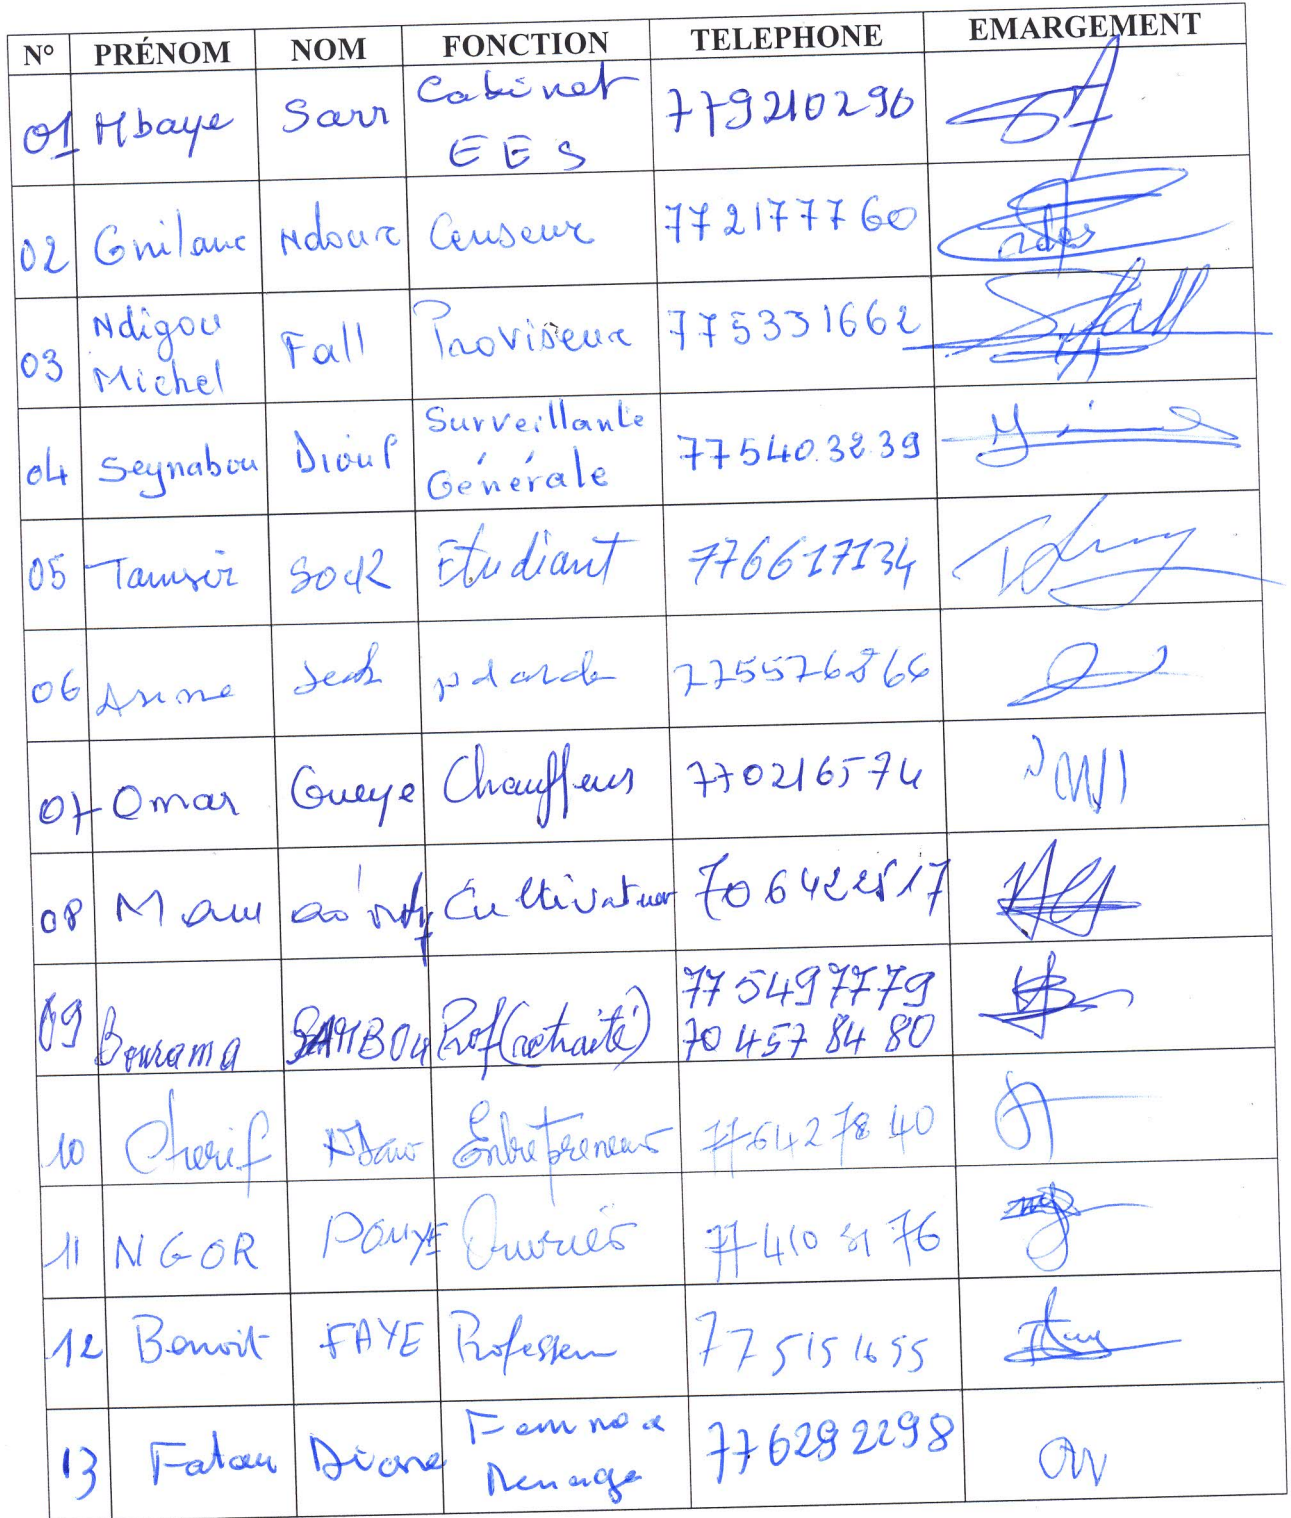 N° PRÉNOM NOM FONCTION TELEPHONE EMARGEMENT
01 Mbaye Sarr Cabinet EES 779210290
02 Gnilane Ndour Censeur 772177760
03 Ndigou Michel Fall Proviseur 775331662
04 Seynabou Diouf Surveillante Générale 775403239
05 Tamsir Sock Etudiant 776617134
06 775576866
07 Omar Gueye Chauffeur 770216574
08 Cultivateur
09 Bourama SAMBOU Prof(retraité) 775497779
70 457 84 80
10 Cherif Entrepreneur 776427840
11 NGOR POUYE Ouvrier
12 Benoit FAYE Professeur 775151655
13 Fatou Dione Femme Menage 776292298